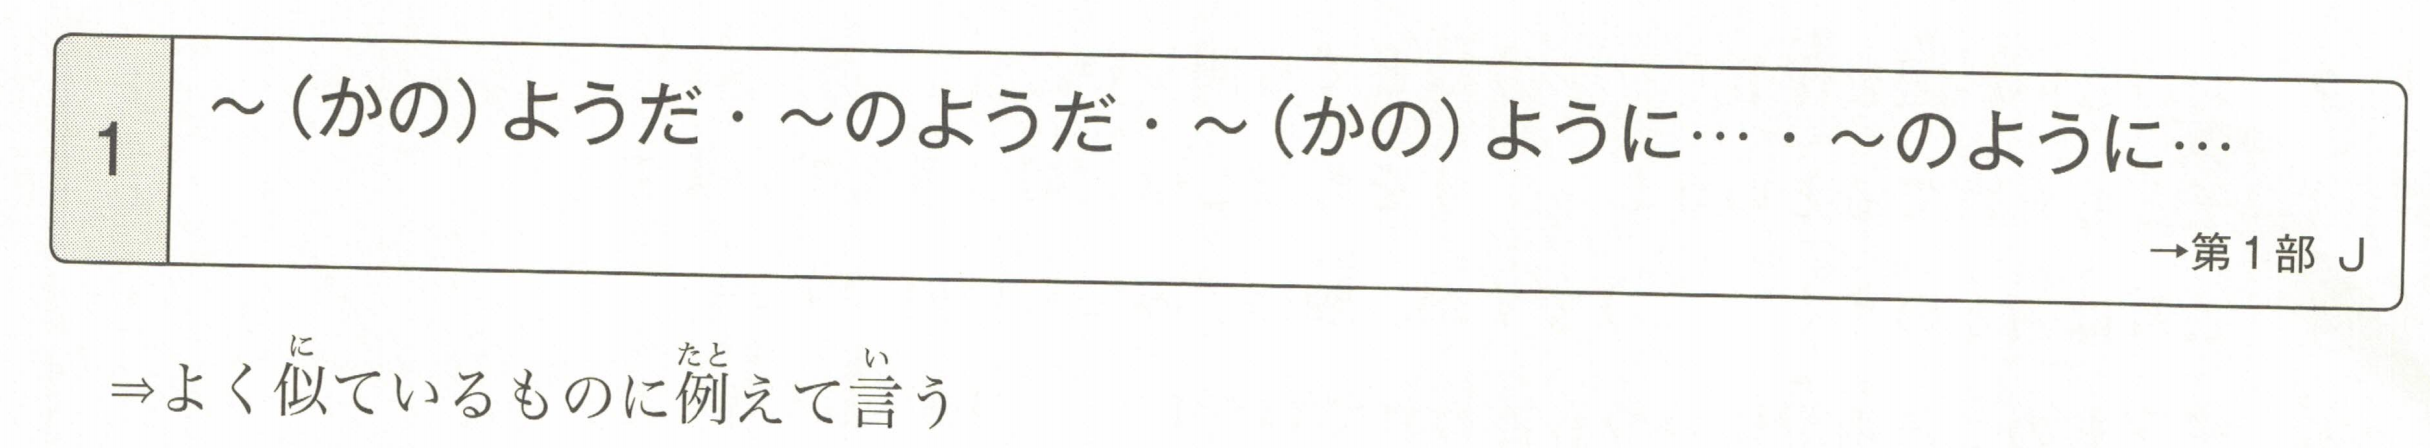 1
～（かの）ようだ・～のようだ・～（かの）ように…・～のように…
→第1部 J
⇒よく似ているものに例えて言う
に たと い